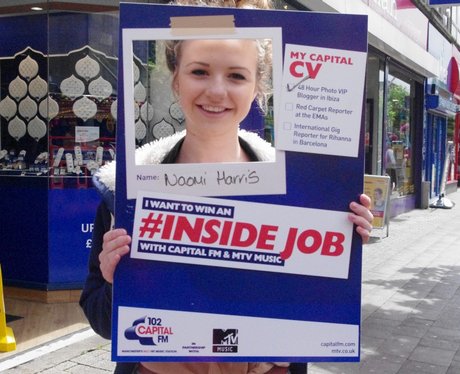 MY CAPITAL
CV
48 Hour Photo VIP
Blogger in Ibiza
Red Carpet Reporter
at the EMAs
International Gig
Reporter for Rihanna
in Barcelona
Name: Naomi Harris
I WANT TO WIN AN
#INSIDE JOB
WITH CAPITAL FM & MTV MUSIC
102
CAPITAL
FM
MANCHESTER'S NO.1 HIT MUSIC STATION
IN PARTNERSHIP WITH
MTV
MUSIC
capitalfm.com
mtv.co.uk
UP
£